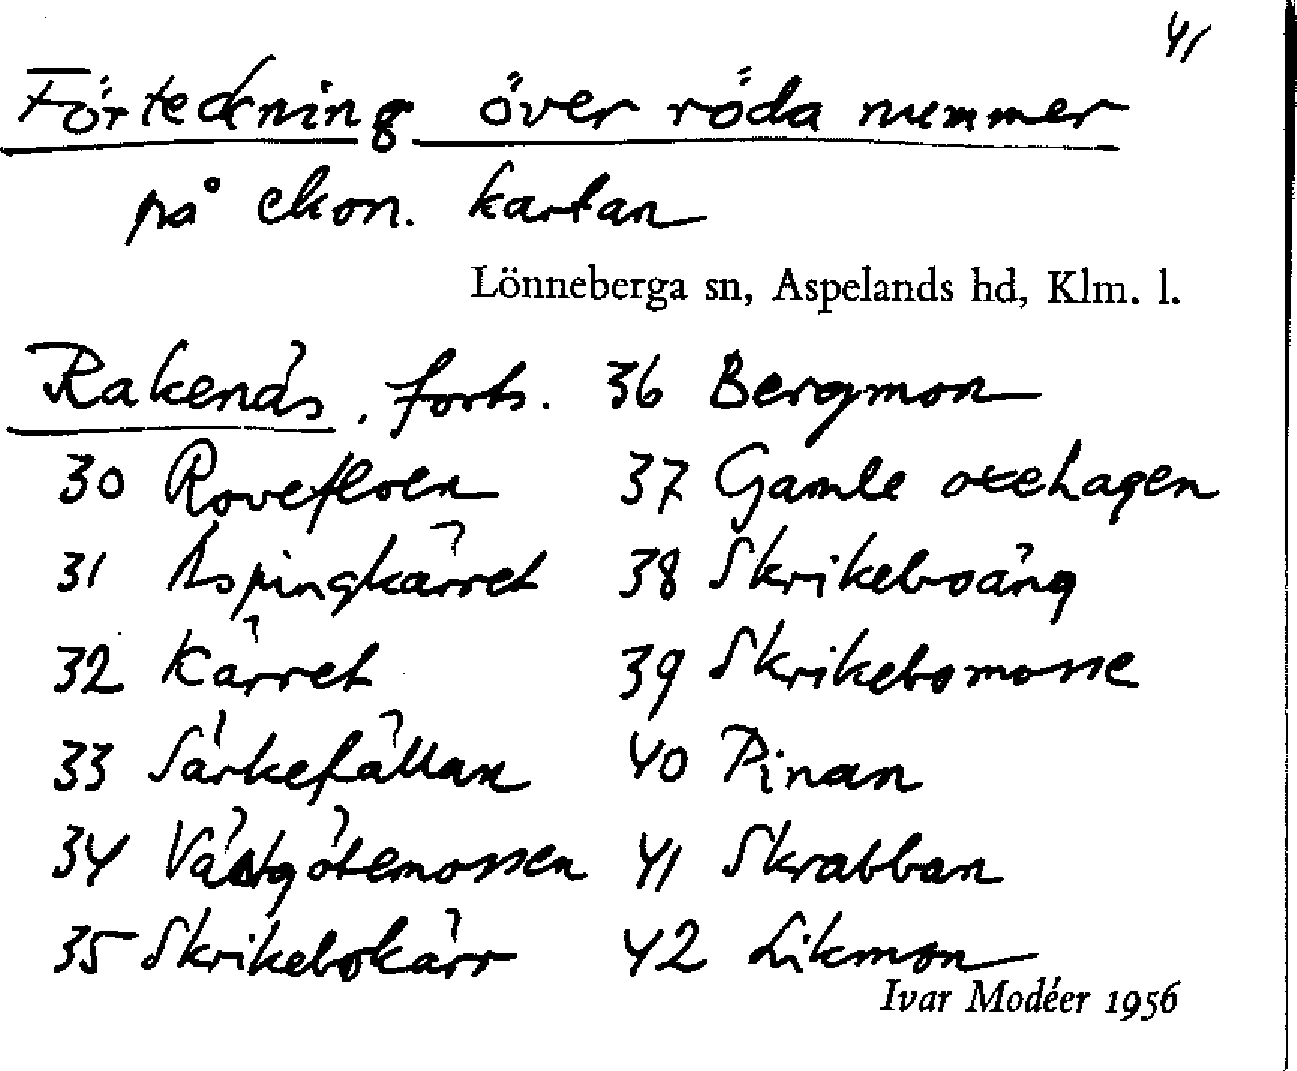 41
Förteckning över röda nummer
på ekon. kartan
Lönneberga sn, Aspelands hd, Klm. l.
Rakenäs, forts.
30 Rovefloen
31 Aspingkärret
32 Kärret
33 Särkefällan
34 Västgötemossen
35 Skrikebokärr
36 Bergmon
37 Gamle oxehagen
38 Skrikeboäng
39 Skrikebomosse
40 Pinan
41 Skrabban
42 Likmon
Ivar Modéer 1956